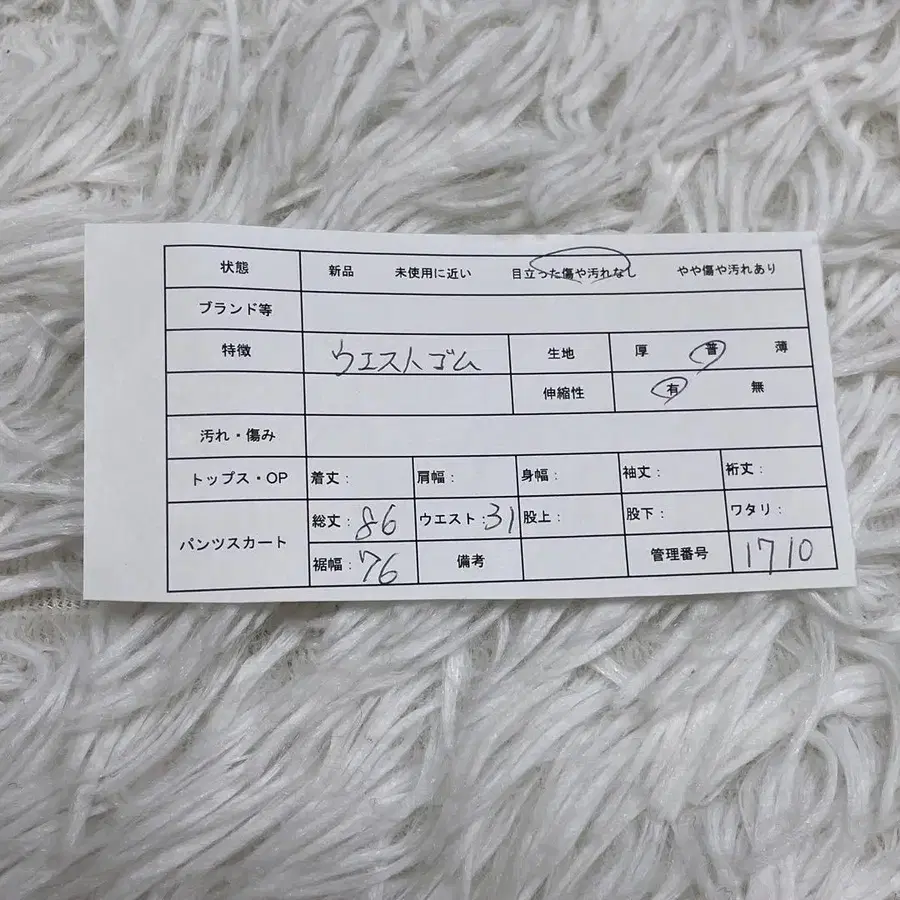 状態 新品 未使用に近い 目立った傷や汚れなし やや傷や汚れあり
ブランド等
特徴 ウエストゴム 生地 厚 普 薄
伸縮性 有 無
汚れ・傷み
トップス・OP 着丈： 肩幅： 身幅： 袖丈： 裄丈：
パンツスカート 総丈：86 ウエスト：31 股上： 股下： ワタリ：
裾幅：76 備考 管理番号 1710